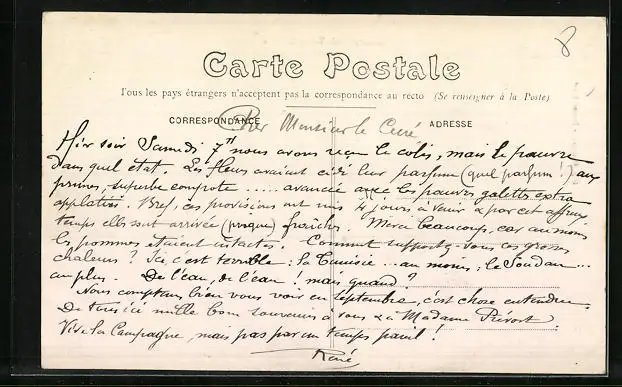 8
Carte Postale
Tous les pays étrangers n'acceptent pas la correspondance au recto (Se renseigner à la Poste)
CORRESPONDANCE
ADRESSE
Cher Monsieur le Curé
Hier soir Samedi 7H nous avons reçu le colis, mais le pauvre
dans quel état. Les fleurs avaient cédé leur parfum (quel parfum !) aux
prunes, superbe compote ..... avancée avec les pauvres galettes extra
aplaties. Bref, ces provisions ont mis 4 jours à venir & par cet affreux
temps elles sont arrivées (presque) fraîches. Merci beaucoup, car au moins
les pommes étaient intactes. Comment supportez-vous ces grosses
chaleurs ? Ici c'est terrible : la Tunisie ... au moins ; le Soudan ...
au plus. De l'eau, de l'eau ! mais quand ?
Nous comptons bien vous voir en septembre, c'est chose entendue.
De tous ici mille bons souvenirs à vous & à Madame Prévost.
Vive la Campagne, mais pas par un temps pareil !
René